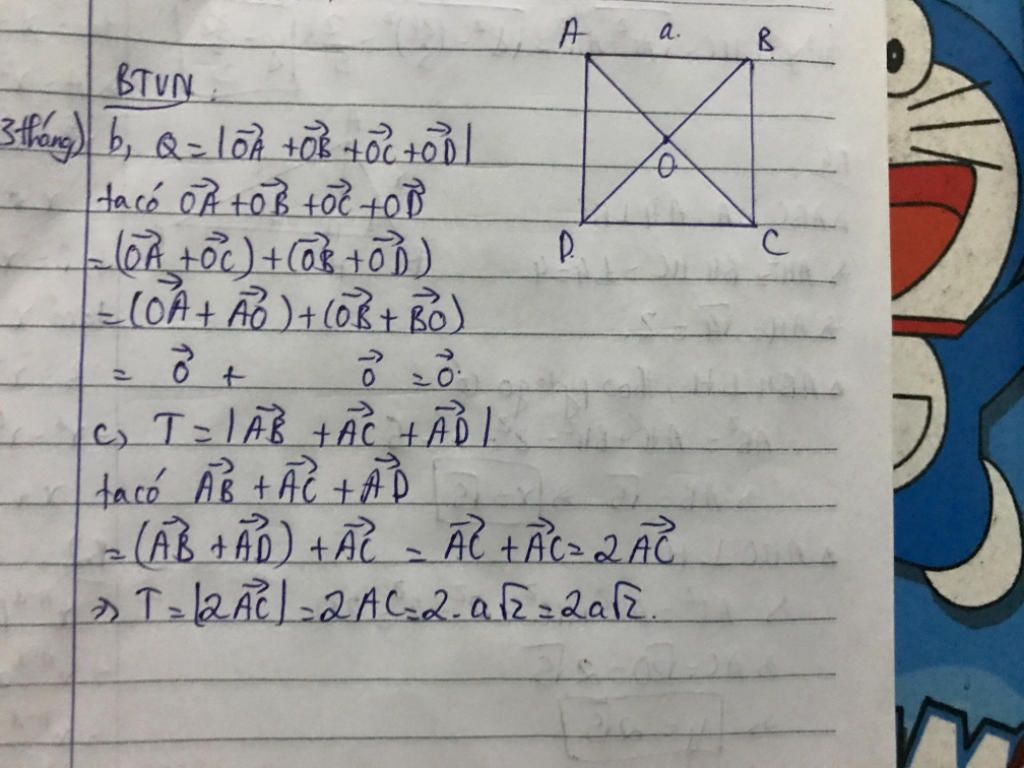 BTVN
3 tháng)
b, Q = |\vec{OA} + \vec{OB} + \vec{OC} + \vec{OD}|
ta có \vec{OA} + \vec{OB} + \vec{OC} + \vec{OD}
= (\vec{OA} + \vec{OC}) + (\vec{OB} + \vec{OD})
= (\vec{OA} + \vec{AO}) + (\vec{OB} + \vec{BO})
= \vec{0} + \vec{0} = \vec{0}.
c, T = |\vec{AB} + \vec{AC} + \vec{AD}|
ta có \vec{AB} + \vec{AC} + \vec{AD}
= (\vec{AB} + \vec{AD}) + \vec{AC} = \vec{AC} + \vec{AC} = 2\vec{AC}
⇒ T = |2\vec{AC}| = 2AC = 2.a√2 = 2a√2.
A a. B
O
D. C